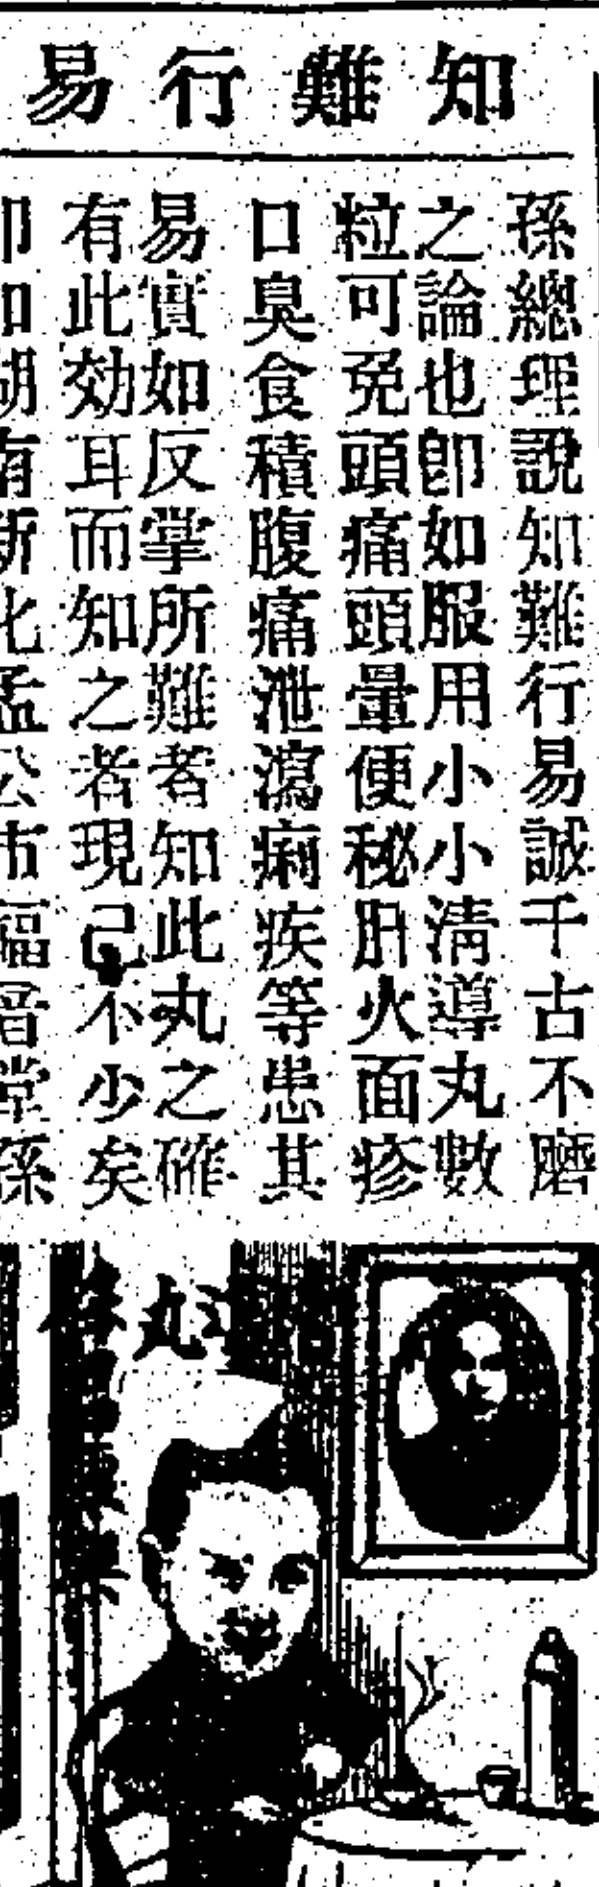 知難行易
孫總理說知難行易誠千古不磨
之論也卽如服用小小淸導丸數
粒可免頭痛頭暈便秘肝火面疹
口臭食積腹痛泄瀉痢疾等患其
易實如反掌所難者知此丸之確
有此効耳而知之者現已不少矣
丸